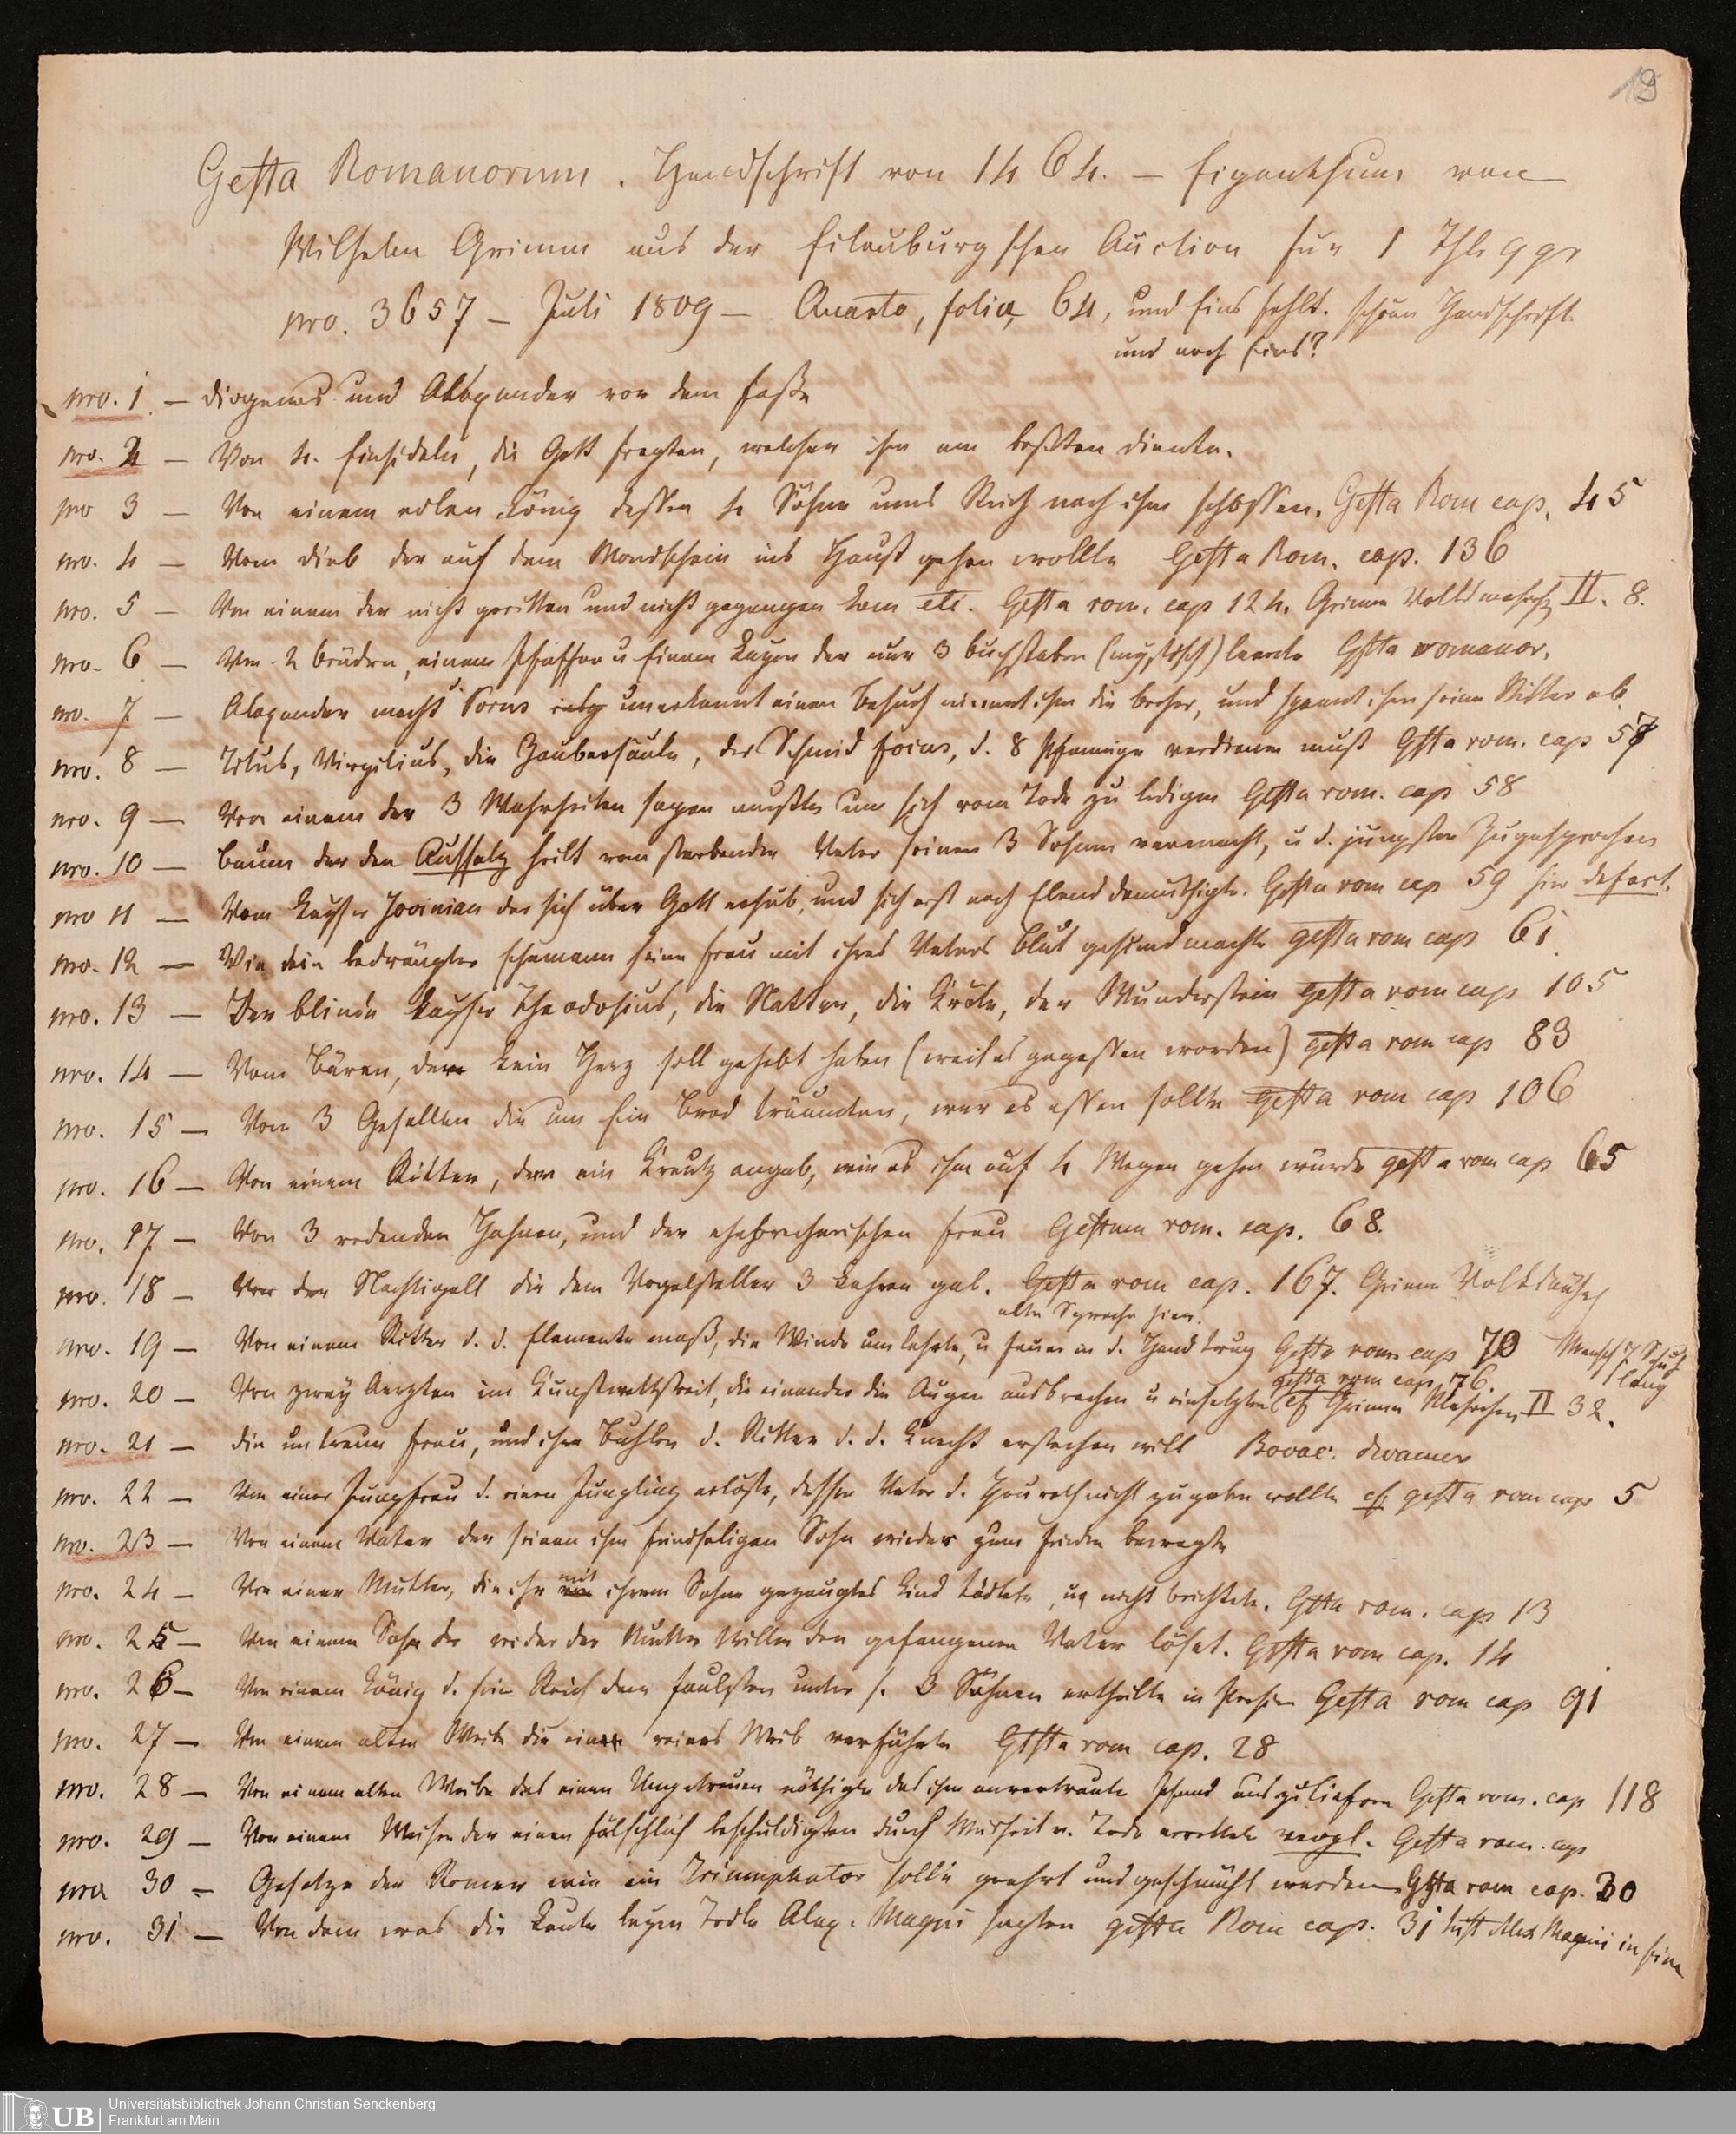 19
Gesta Romanorum. Handschrift von 1464. – Eigenthum von
Wilhelm Grimm aus der Eilenburgschen Auction für 1 Thlr 9 gr
nro. 3657 – Juli 1809 – Quarto, folia, 64, und Eins fehlt. schöne Handschrift.
und noch Eins?
nro. 1 – Diogenes und Alexander vor dem Fasse
nro. 2 – Von 4. Einsideln, die Gott fragten, welcher ihm am bessten diente.
nro 3 – Von einem edlen König dessen 4 Söhne ums Reich nach ihm schossen. Gesta Rom cap. 45
nro. 4 – Vom Dieb der auf dem Mondschein ins Hauss gehen wollte Gesta Rom. cap. 136
nro. 5 – Von einem der nicht geritten und nicht gegangen kam etc. Gesta rom. cap 124. Grimm Volksmährch II. 8.
nro. 6 – Von 2 Brüdern, einem Pfaffen u Einem Layen der nur 3 Buchstaben (mystisch) lernte Gsta romanor.
nro. 7 – Alexander macht Porus unerkannt einen Besuch nimmt ihm die Becher, und spannt ihm seine Ritter ab
nro. 8 – Titus, Virgilius, die Zaubersäule, der Schmid Focus, d. 8 Pfennige verdienen muß Gsta rom. cap 57
nro. 9 – Von einem der 3 Wahrheiten sagen mußte um sich vom Tode zu ledigen Gesta rom. cap 58
nro. 10 – Baum der den Aussatz heilt vom sterbenden Vater seinen 3 Sohnen vermacht, u d. jüngsten zugesprochen
nro 11 – Vom Kayser Jovinian der sich über Gott erhub, und sich erst nach Elend demüthigte. Gesta rom cap 59 hier defect.
nro. 12 – Wie ein bedrängter Ehemann seine Frau mit ihres Vaters Blut gesund machte gesta rom cap 61
nro. 13 – Der blinde Kayser Theodosius, die Natter, die Kröte, der Wunderstein gesta rom cap 105
nro. 14 – Vom Bären, der kein Herz soll gehabt haben (weil es gegessen worden) gesta rom cap 83
nro. 15 – Von 3 Gesellen die um Ein Brod träumten, wer es essen sollte gesta rom cap 106
nro. 16 – Von einem Ritter, dem ein Kreutz angab, wie es ihm auf 4 Wegen gehen würde gesta rom cap 65
nro. 17 – Von 3 redenden Hahnen, und der ehebrecherischen Frau Gestam rom. cap. 68.
nro. 18 – Von der Nachtigall die dem Vogelsteller 3 Lehren gab. Gesta rom cap. 167. Grimm
alte Sprache hier.
nro. 19 – Von einem Ritter d. d. Elemente maß, die Winde umkehrte, u Feuer in d. Hand trug Gesta rom cap 70 Mensch 7 Schuh lang
gesta rom cap. 76.
nro. 20 – Von zwey Aerzten im Kunstwettstreit, die einander die Augen ausbrechen u einsetzten cf Grimm Mährchen II 32.
nro. 21 – Die untreue Frau, und ihr Buhler d. Ritter d. d. Knecht erstechen will
nro. 22 – Von einer Jungfrau d. einen Jüngling erlöste, dessen Vater d. Heurath nicht zugeben wollte cf. gesta rom cap 5
nro. 23 – Von einem Vater der seinen ihm feindseligen Sohn wieder zum Frieden bewegte
nro. 24 – Von einer Mutter, die ihr mit ihrem Sohne gezeugtes Kind tödtete, u nicht beichtete. Gsta rom. cap 13
nro. 25 – Von einem Sohn der wider der Mutter Willen den gefangenen Vater löset. Gesta rom cap. 14
nro. 26 – Von einem König d. sein Reich dem faulsten unter s. 3 Söhnen ertheilte in Persien Gesta rom cap 91
nro. 27 – Von einem alten Weibe die ein reines Weib verführte Gesta rom cap. 28
nro. 28 – Von einem alten Weibe das einen Ungetreuen nöthigte das ihm anvertraute Pfand auszuliefern Gesta rom. cap 118
nro. 29 – Von einem Weisen der einen fälschlich beschuldigten durch Weisheit v. Tode errettete vergl. Gesta rom. cap
nro 30 – Gesetze der Römer wie ein Triumphator solle geehrt und geschmäht werden Gsta rom cap. 30
nro. 31 – Von dem was die Leute beym Tode Alex. Magni sagten gesta Rom cap. 31 hist Alex Magni in fine
UB Universitätsbibliothek Johann Christian Senckenberg
Frankfurt am Main